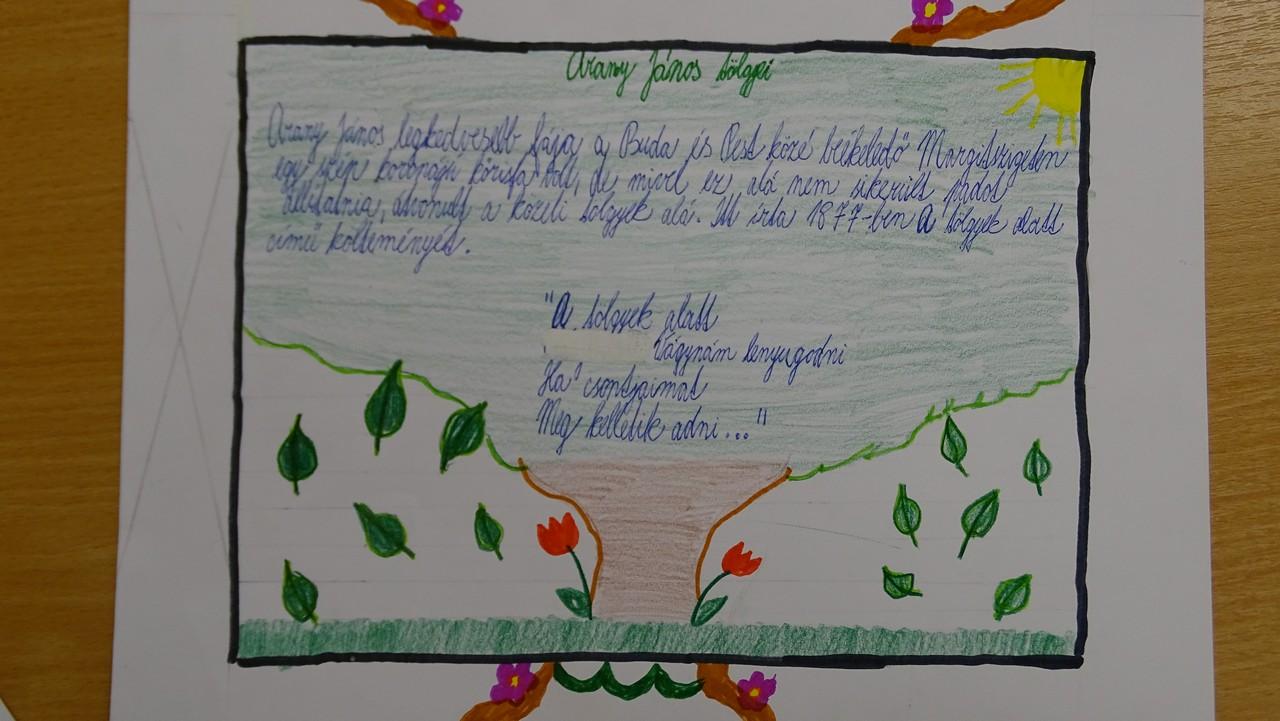 Arany János tölgyei
Arany János legkedvesebb fája a Buda és Pest közé beékelődő Margitszigeten
egy szép koronájú kőrisfa volt, de mivel ez alá nem sikerült padot
állítatnia, átvonult a közeli tölgyek alá. Itt írta 1877-ben A tölgyek alatt
című költeményét.
"A tölgyek alatt
Vágynám lenyugodni
Ha csontjaimat
Meg kelletik adni..."